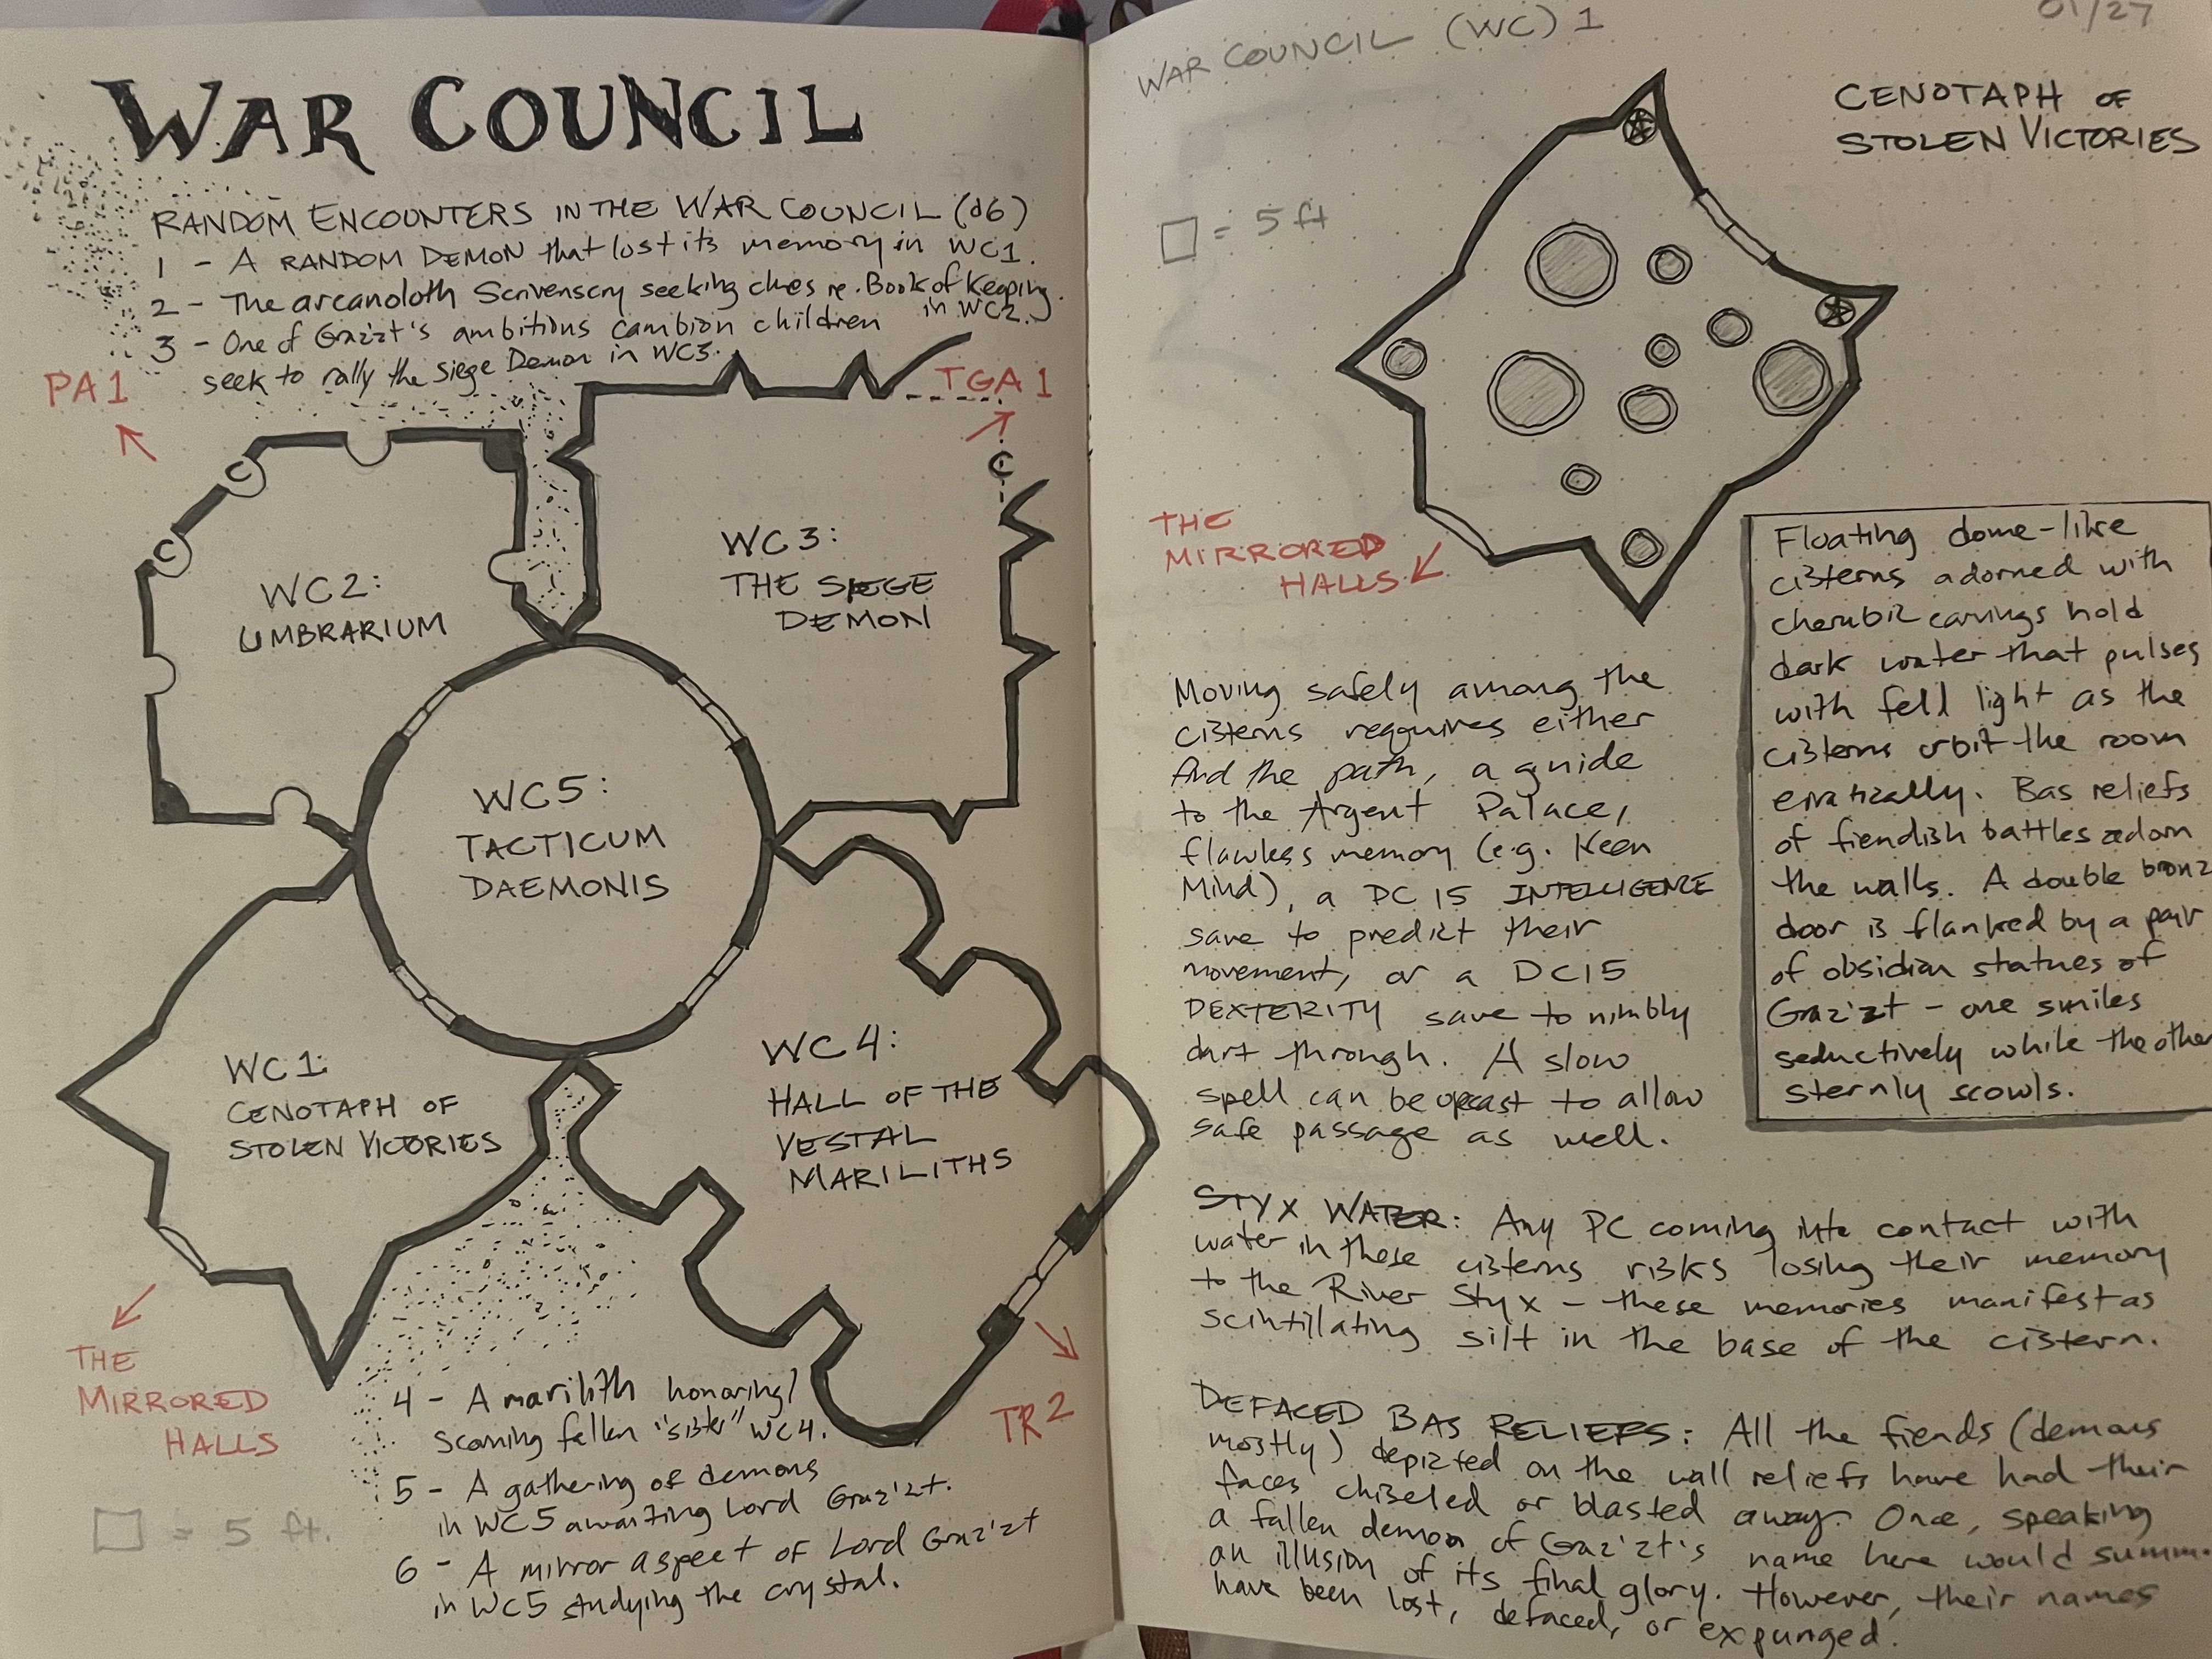 WAR COUNCIL
RANDOM ENCOUNTERS IN THE WAR COUNCIL (d6)
1 - A RANDOM DEMON that lost its memory in WC1.
2 - The arcanoloth Scrivenscry seeking clues re. Book of Keeping
in WC2.
3 - One of Graz'zt's ambitious cambion children
seek to rally the siege Demon in WC3.
PA1
TGA1
C
C
C
WC2:
UMBRARIUM
WC3:
THE SIEGE
DEMON
WC5:
TACTICUM
DAEMONIS
WC1:
CENOTAPH OF
STOLEN VICTORIES
WC4:
HALL OF THE
VESTAL
MARILITHS
THE
MIRRORED
HALLS
TR2
4 - A marilith honoring/
scorning fallen "sister" WC4.
5 - A gathering of demons
in WC5 awaiting Lord Graz'zt.
6 - A mirror aspect of Lord Graz'zt
in WC5 studying the crystal.
= 5 ft.
WAR COUNCIL (WC) 1
01/27
CENOTAPH OF
STOLEN VICTORIES
= 5 ft
THE
MIRRORED
HALLS
Floating dome-like
cisterns adorned with
cherubic carvings hold
dark water that pulses
with fell light as the
cisterns orbit the room
erratically. Bas reliefs
of fiendish battles adorn
the walls. A double bronz
door is flanked by a pair
of obsidian statues of
Graz'zt - one smiles
seductively while the other
sternly scowls.
Moving safely among the
cisterns requires either
find the path, a guide
to the Argent Palace,
flawless memory (e.g. Keen
Mind), a DC 15 INTELLIGENCE
save to predict their
movement, or a DC15
DEXTERITY save to nimbly
dart through. A slow
spell can be upcast to allow
safe passage as well.
STYX WATER: Any PC coming into contact with
water in these cisterns risks losing their memory
to the River Styx - these memories manifest as
scintillating silt in the base of the cistern.
DEFACED BAS RELIEFS: All the fiends (demons
mostly) depicted on the wall reliefs have had their
faces chiseled or blasted away. Once, speaking
a fallen demon of Graz'zt's name here would summ
an illusion of its final glory. However, their names
have been lost, defaced, or expunged.